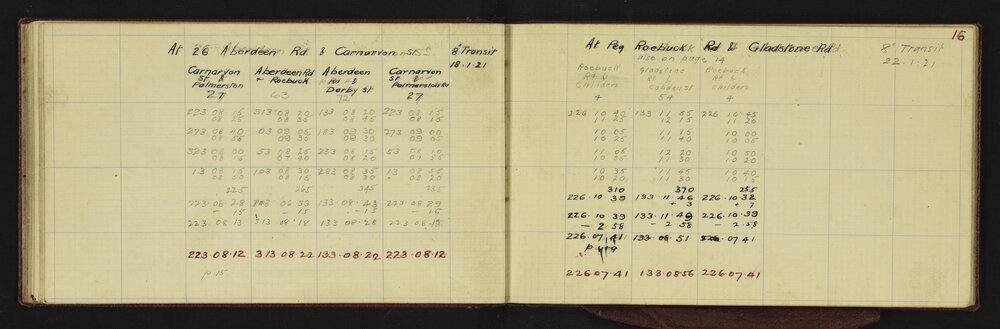 At 26 Aberdeen Rd & Carnarvon St 8" Transit
18.1.21
Carnarvon St & Palmerston 27
Aberdeen Rd + Roebuck 63
Aberdeen Rd & Derby St 72
Carnarvon St & Palmerston Rd 27
223 08 15 313 08 20 133 08 20 223 08 15
08 25 08 35 08 45 08 15
273 08 40 03 09 05 183 09 30 273 09 00
08 55 09 30 09 30 09 05
323 08 00 53 08 25 233 08 15 53 08 10
08 15 07 40 08 20 07 55
13 08 15 103 08 30 283 08 35 13 08 55
08 50 08 15 08 30 08 20
225 265 345 235
223 08 28 313 08 33 133 08 43 223 08 29
- 15 - 15 - 15 - 16
223 08 13 313 08 18 133 08 28 223 08 13
223.08.12 313 08.22 133.08.22 223.08.12
p.15
16
At Peg Roebuck Rd & Gladstone Rd 8" Transit
also on page 14 22.1.21
Roebuck Rd & Childers 4
Gladstone Rd & Cobden St 54
Roebuck Rd & Childers 4
226 10 40 133 11 55 226 10 45
11 25 12 15 11 20
10 05 11 15 10 00
10 25 11 40 10 05
11 05 12 20 10 50
10 25 11 30 10 20
10 35 11 45 10 40
10 20 11 30 10 15
310 370 255
226.10.39 133.11.46 226.10.32
+ 3 + 7
226.10.39 133.11.49 226.10.39
- 2.58 - 2.58 - 2.58
226.07.41 133.08.51 226.07.41
226 07.41 133.08 56 226.07.41